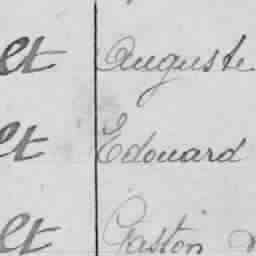 et Auguste
et Edouard
et Gaston